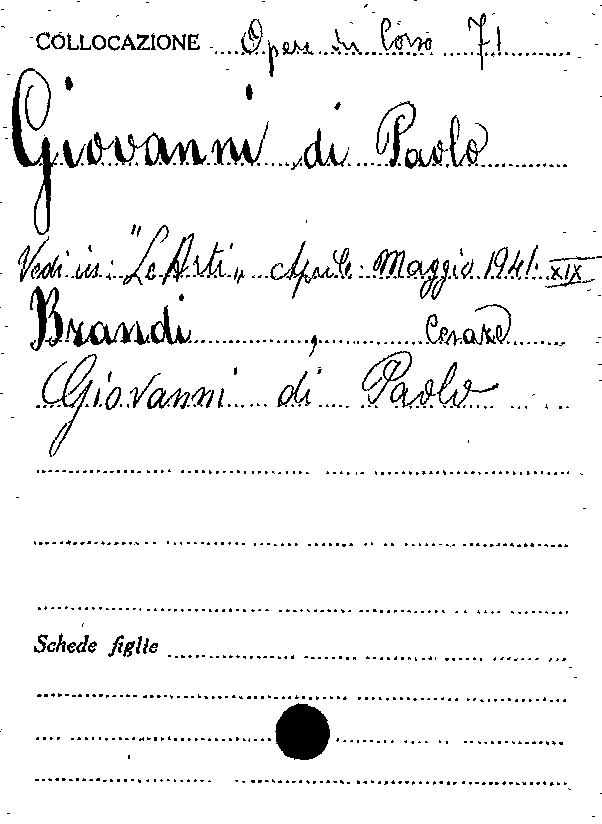 COLLOCAZIONE Opere in Corso 71
Giovanni di Paolo
Vedi in: "Le Arti„ Aprile-Maggio 1941-XIX
Brandi, Cesare
Giovanni di Paolo
Schede figlie